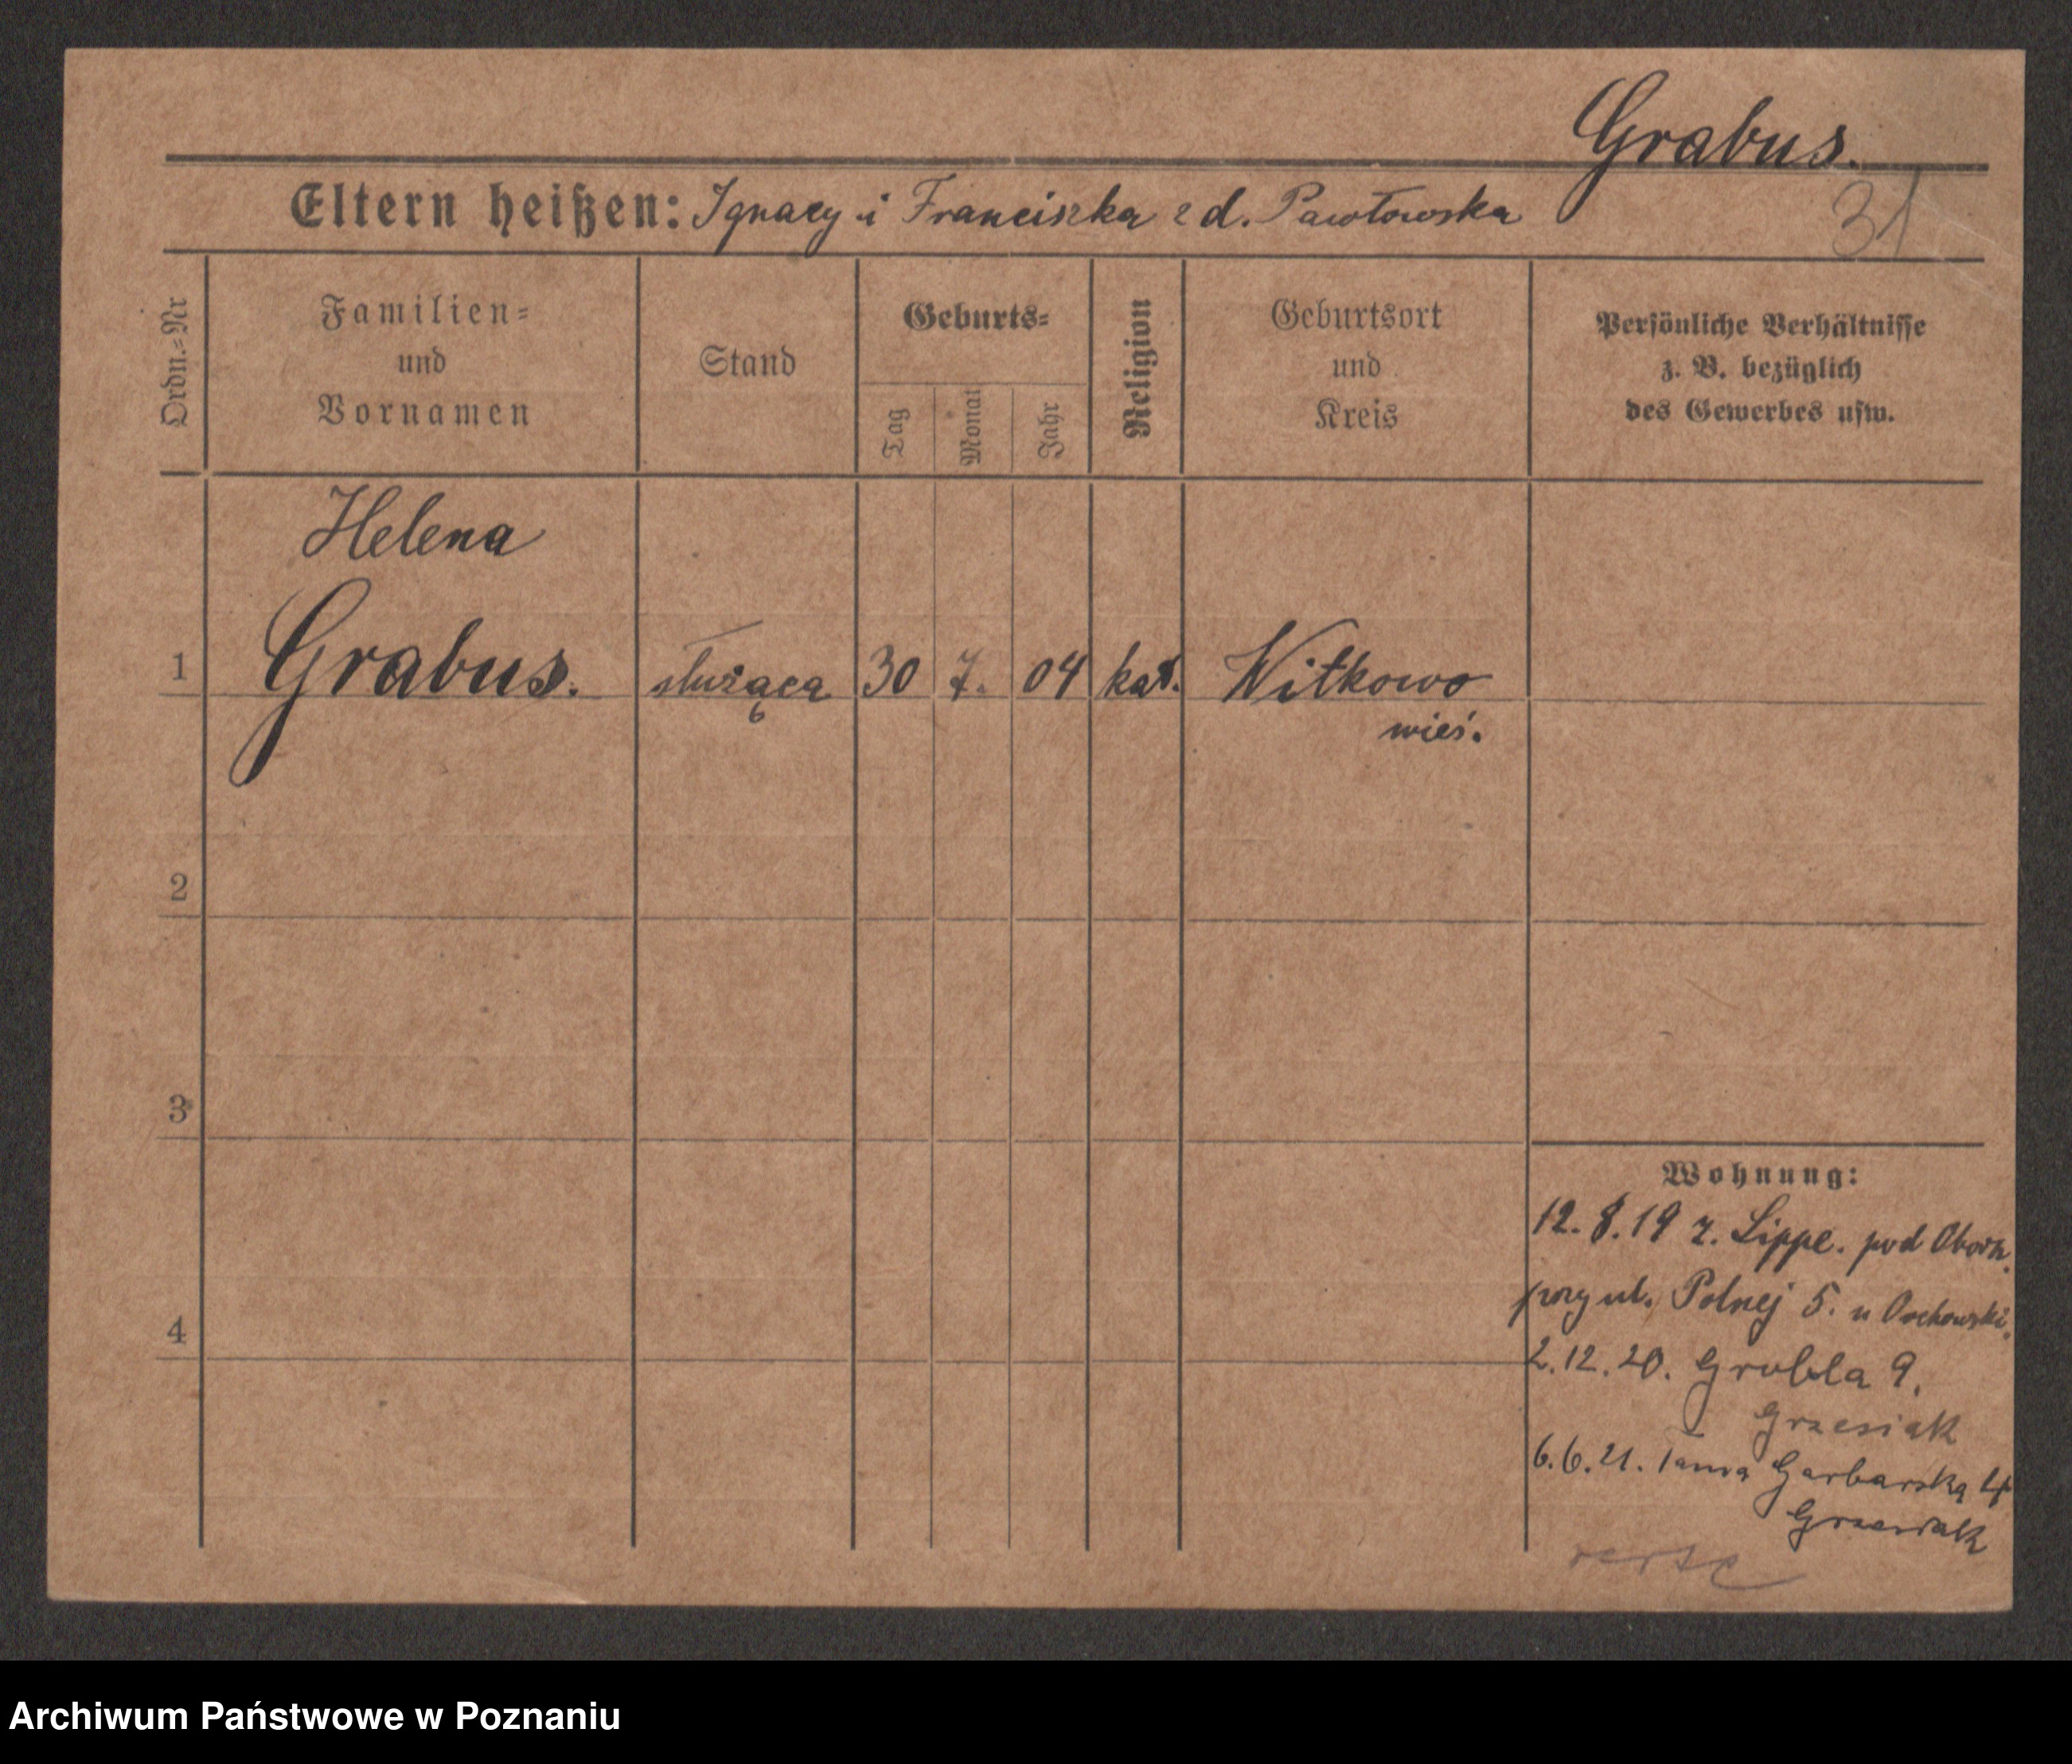 Grabus.
Eltern heißen: Ignacy i Franciszka z d. Pawłowska
31
Ordn.=Nr
Familien=
und
Vornamen
Stand
Geburts=
Tag
Monat
Jahr
Religion
Geburtsort
und
Kreis
Persönliche Verhältnisse
z. B. bezüglich
des Gewerbes usw.
Helena
1 Grabus. służąca 30 7. 04 kat. Witkowo
wieś.
2
3
4
Wohnung:
12. 8. 19 z. Lippe. pod Oborn.
przy ul. Polnej 5. u
2.12.20. Grobla 9.
Grzesiak
6.6.21. Tama Garbarska 4
Grzesiak
verte
Archiwum Państwowe w Poznaniu